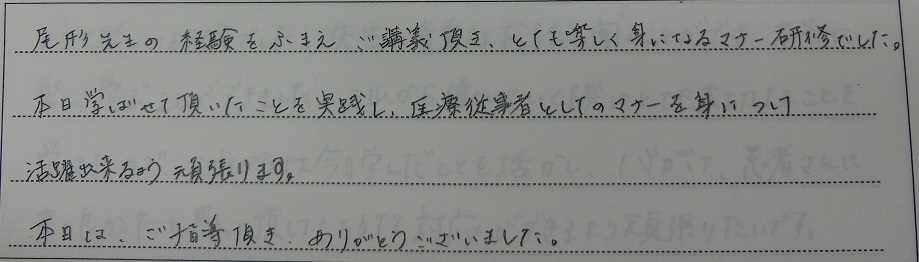 尾形先生の経験をふまえご講義頂き、とても楽しく身になるマナー研修でした。
本日学ばせて頂いたことを実践し、医療従事者としてのマナーを身につけ
活躍出来るよう頑張ります。
本日は、ご指導頂き、ありがとうございました。